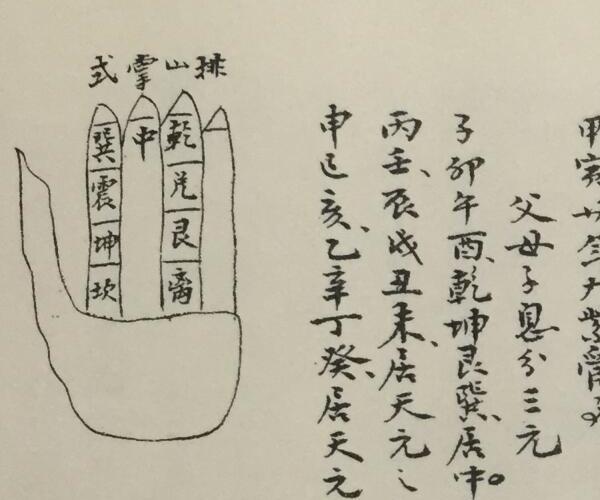 父母子息分三元
子卯午酉、乾坤艮巽、居中。
丙壬、辰戌丑未、居天元之
申巳亥、乙辛丁癸、居天元
排山掌式
乾
兑
艮
离
中
巽
震
坤
坎